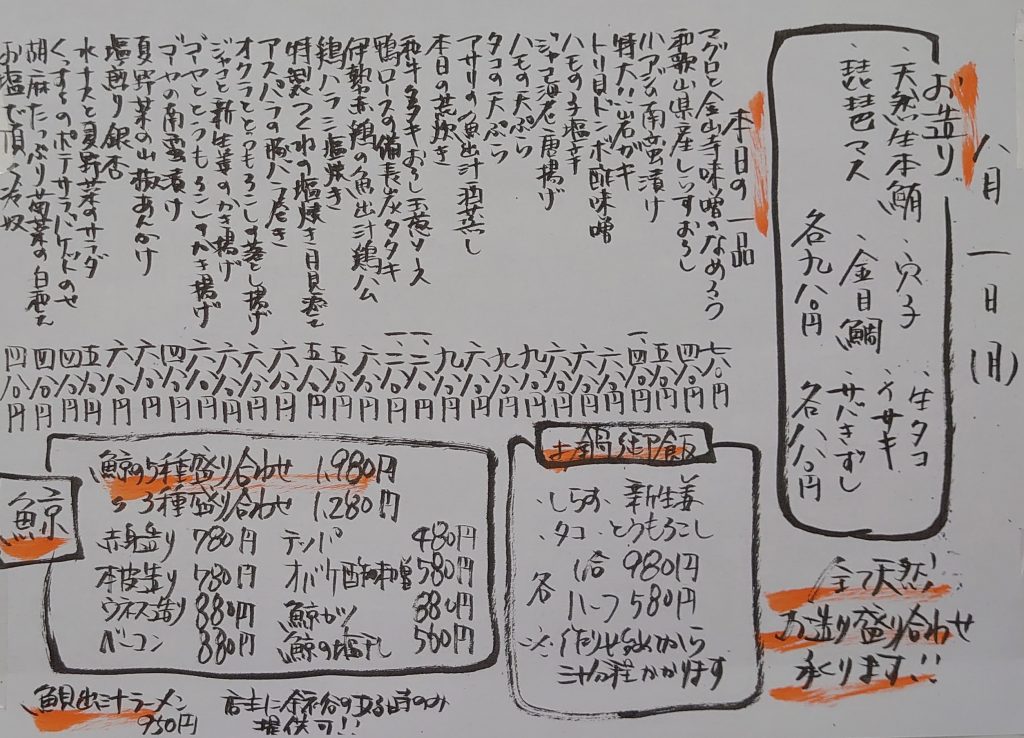 八月一日(月)
お造り
・天然生本鮪
・琵琶マス
・穴子
・金目鯛
各九八〇円
・生タコ
・イサキ
・サバきずし
各八八〇円
全て天然!
お造り盛り合わせ
承ります!!
本日の一品
マグロと金山寺味噌のなめろう 七八〇円
和歌山県産しらすおろし 四八〇円
小アジの南蛮漬け 五八〇円
特大岩ガキ
トリ貝ドンツボ酢味噌
ハモの子塩辛
ジャコ海老唐揚げ
ハモの天ぷら
タコの天ぷら
アサリの魚出汁酒蒸し
本日の荒炊き
和牛タタキおろし玉葱ソース
鴨ロースの備長炭タタキ
伊勢赤鶏の魚出汁鶏ハム
鶏ハラミ塩焼き
特製つくねの塩焼き月見添え
アスパラの豚バラ巻き
オクラととうもろこしの落とし揚げ
ジャコと新生姜のかき揚げ
ゴーヤととうもろこしのかき揚げ
ゴーヤの南蛮漬け
夏野菜の山椒あんかけ
塩煎り銀杏
水ナスと夏野菜のサラダ
くんすものポテサラバケットのせ
胡麻たっぷり菊菜の白和え
お塩で頂く冷奴 四八〇円
お鍋御飯
・しらす・新生姜
・タコ・とうもろこし
各
一合 980円
ハーフ 580円
※作り始めから
三十分程かかります
鯨
鯨の5種盛り合わせ 1,980円
〃3種盛り合わせ 1,280円
赤身造り 780円
本皮造り 780円
ウネス造り 880円
ベーコン 880円
テッパ 480円
オバケ酢味噌 580円
鯨カツ 880円
鯨の塩干し 560円
魚貝出汁ラーメン
950円
店主に余裕のある時のみ
提供可!!